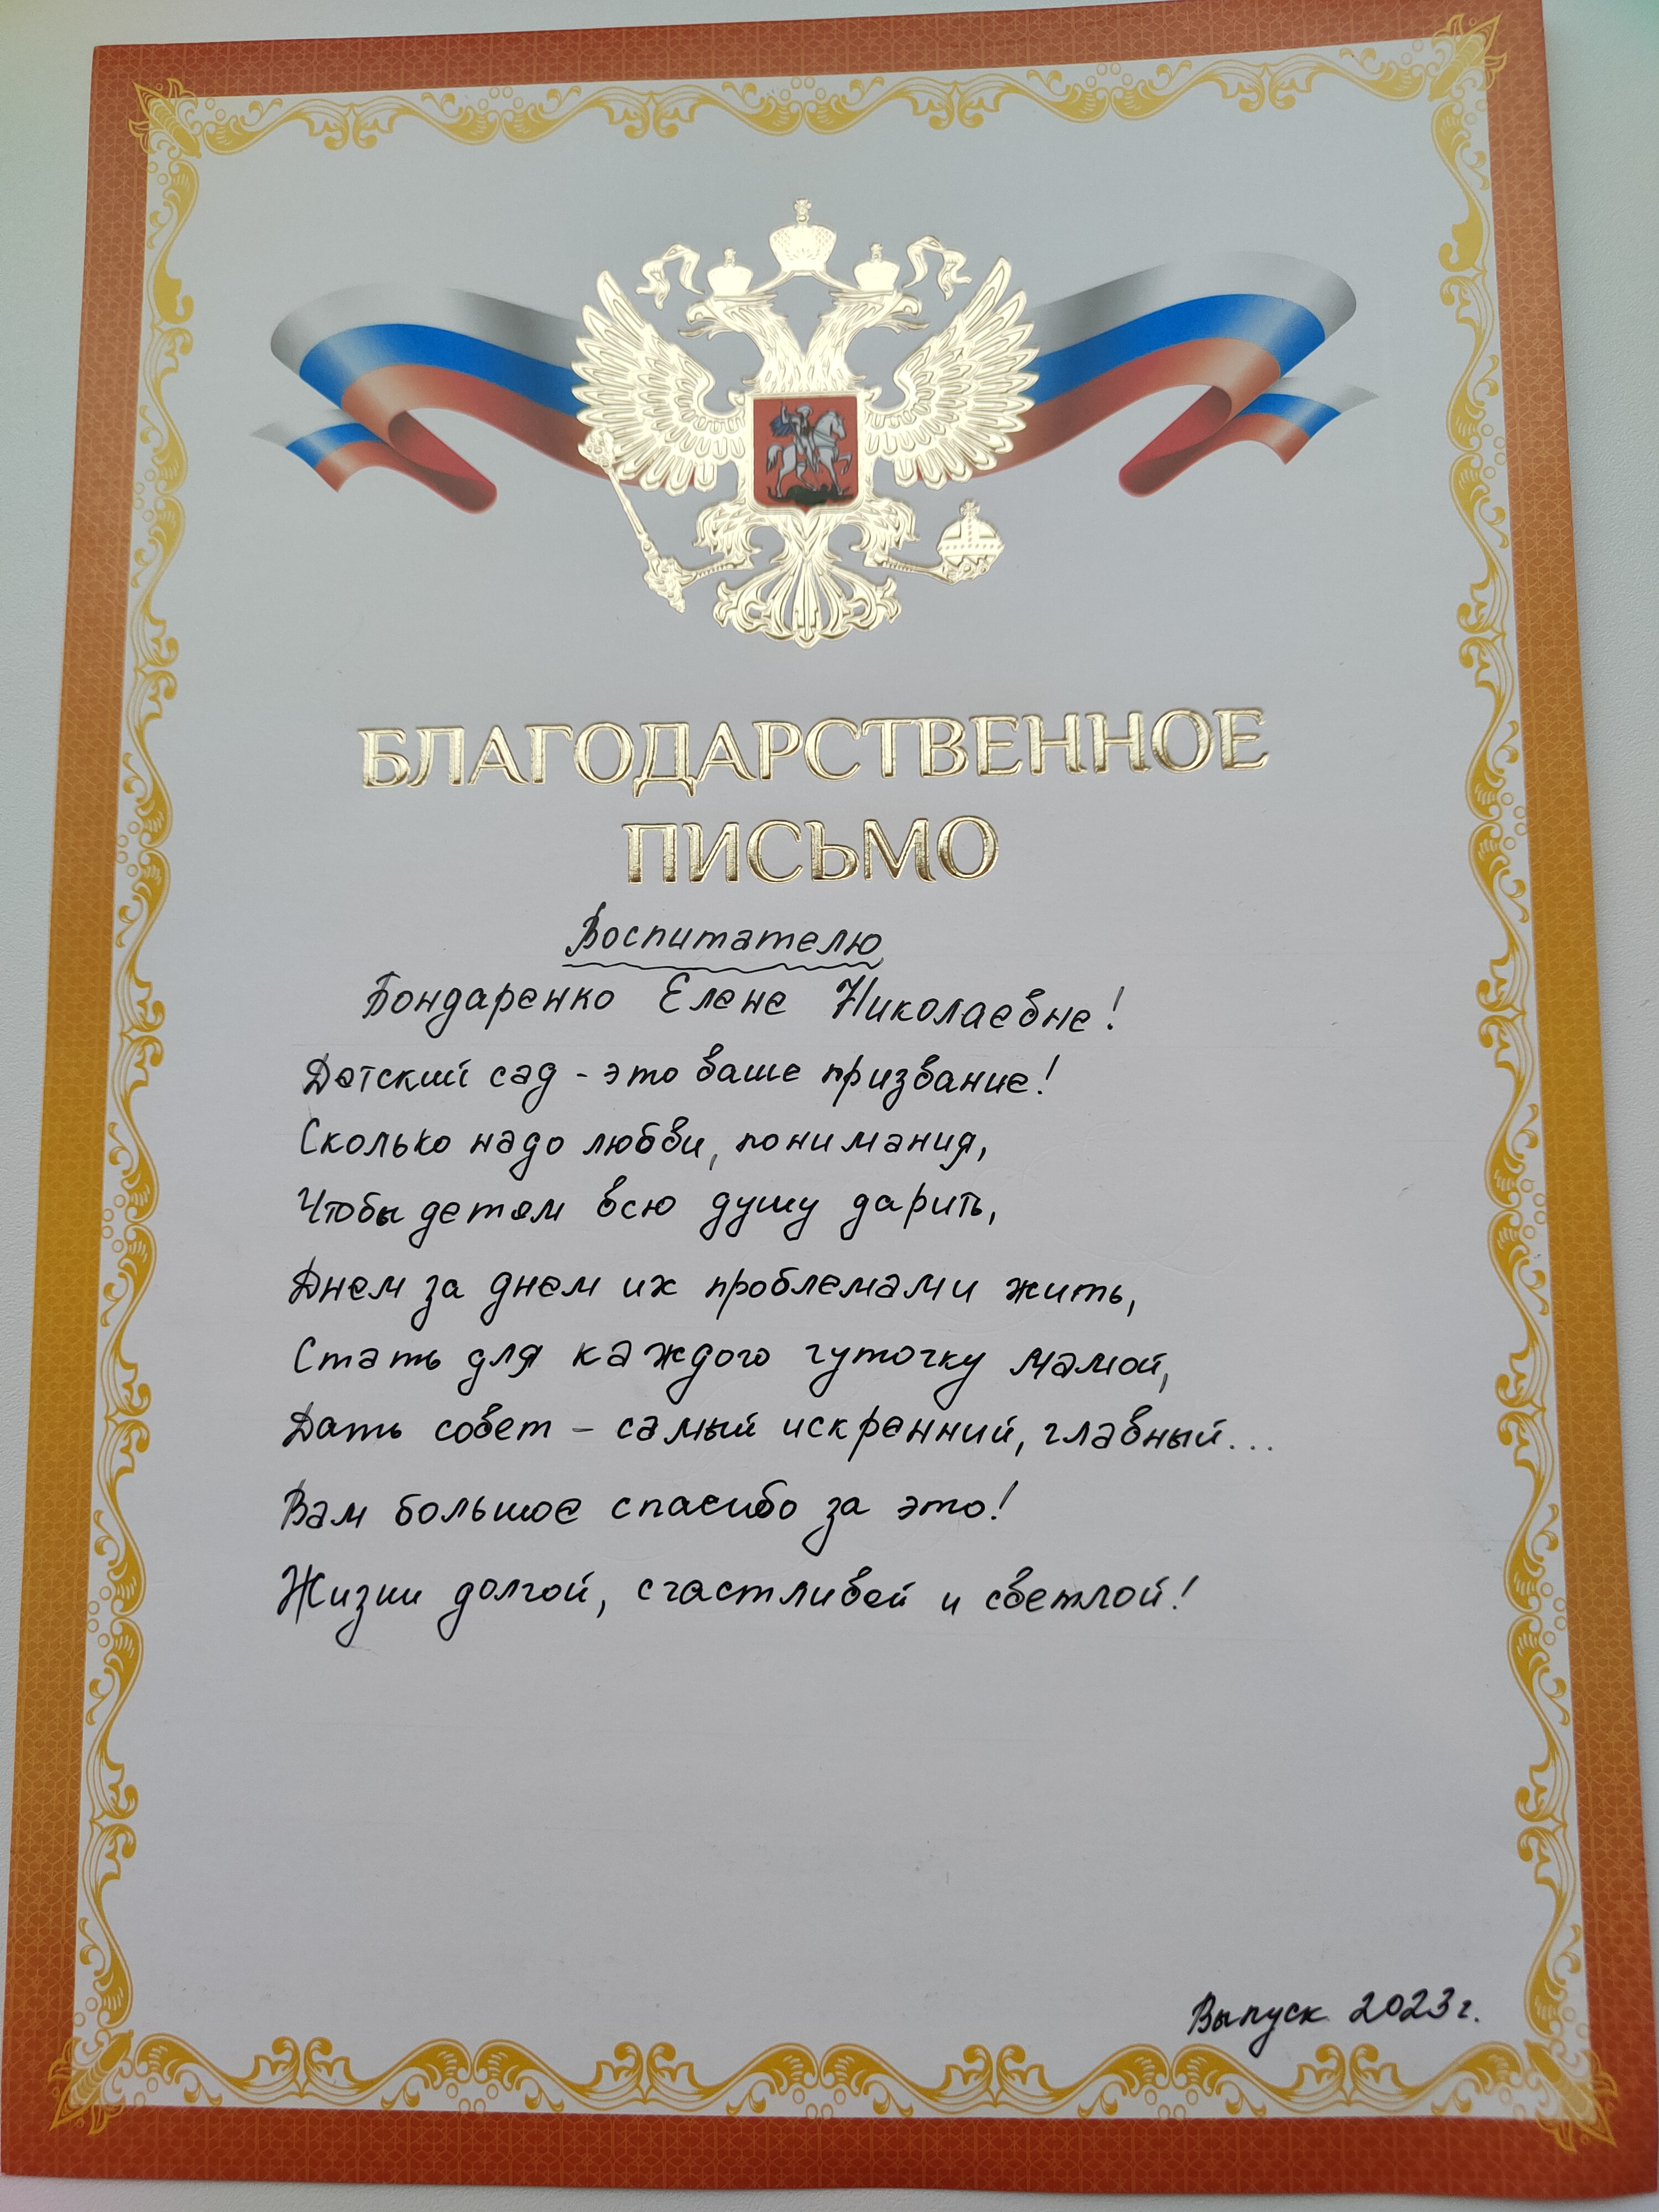 БЛАГОДАРСТВЕННОЕ
ПИСЬМО
Воспитателю
Бондаренко Елене Николаевне!
Детский сад - это ваше призвание!
Сколько надо любви, понимания,
Чтобы детям всю душу дарить,
Днем за днем их проблемами жить,
Стать для каждого чуточку мамой,
Дать совет - самый искренний, главный...
Вам большое спасибо за это!
Жизни долгой, счастливой и светлой!
Выпуск 2023г.